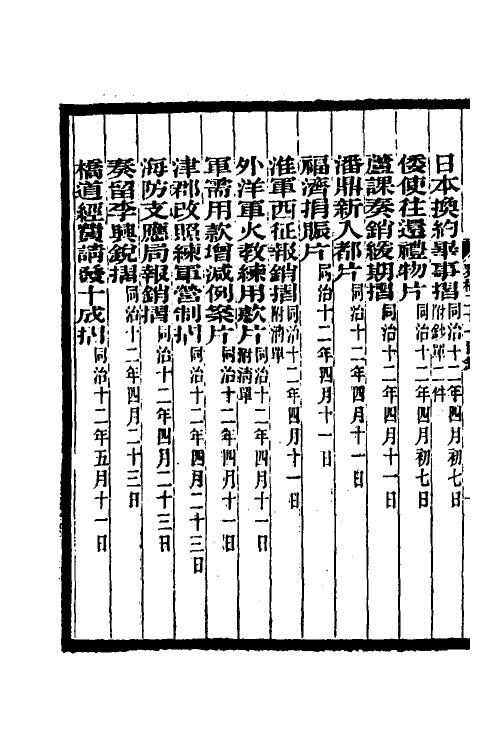 日本換約畢事摺 同治十二年四月初七日 附鈔單二件
倭使往還禮物片 同治十二年四月初七日
蘆課奏銷緩期摺 同治十二年四月十一日
潘鼎新入都片 同治十二年四月十一日
福濟捐賑片 同治十二年四月十一日
淮軍西征報銷摺 同治十二年四月十一日 附清單
外洋軍火教練用款片 同治十二年四月十一日 附清單
軍需用款增減例案片 同治十二年四月十一日
津郡改照練軍營制摺 同治十二年四月二十三日
海防支應局報銷摺 同治十二年四月二十三日
奏留李興銳摺 同治十二年四月二十三日
橋道經費請發十成摺 同治十二年五月十一日